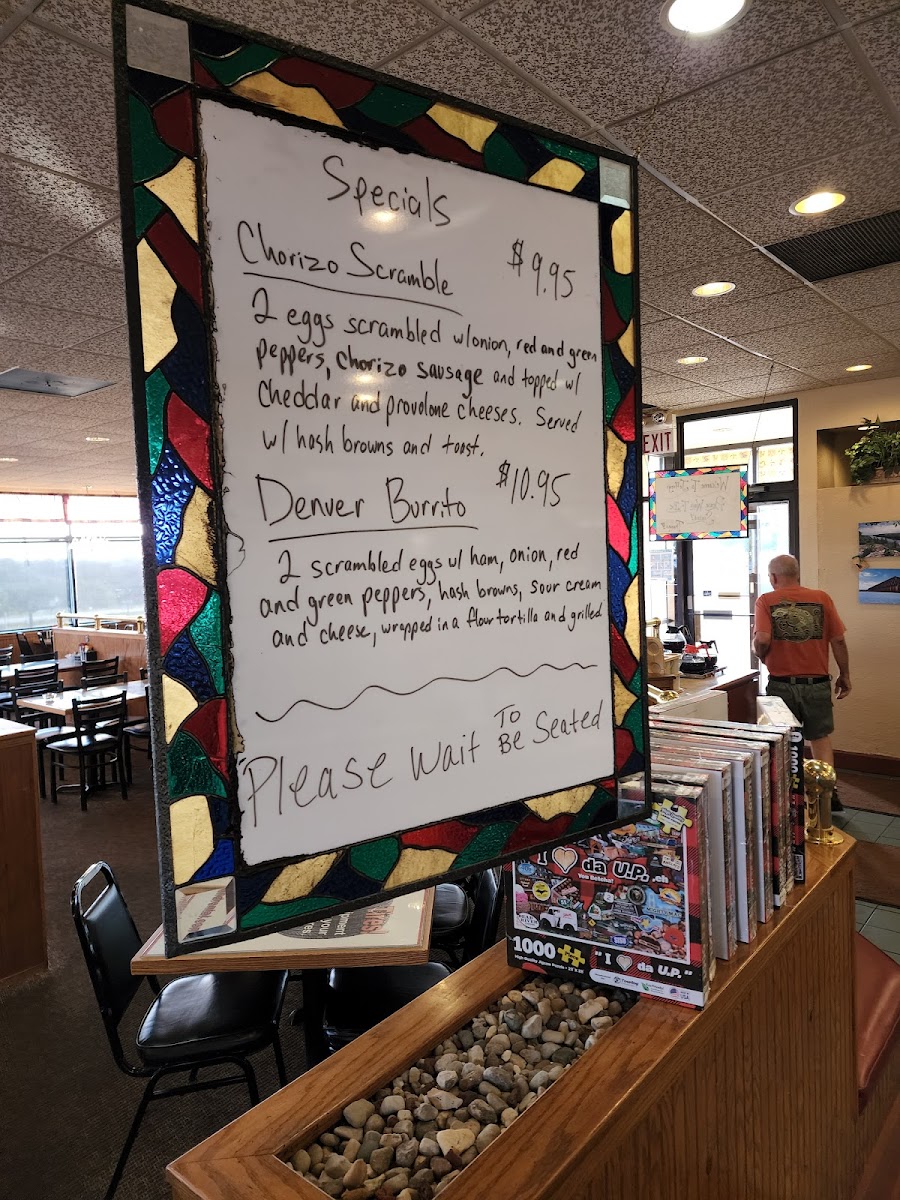 Specials
Chorizo Scramble $9.95
2 eggs scrambled w/onion, red and green
peppers, Chorizo sausage and topped w/
Cheddar and provolone cheeses. Served
w/ hash browns and toast.
Denver Burrito $10.95
2 scrambled eggs w/ ham, onion, red
and green peppers, hash browns, sour cream
and cheese, wrapped in a flour tortilla and grilled
Please Wait TO
BE Seated
EXIT
I da U.P., eh
You Betcha!
1000
"I da U.P."